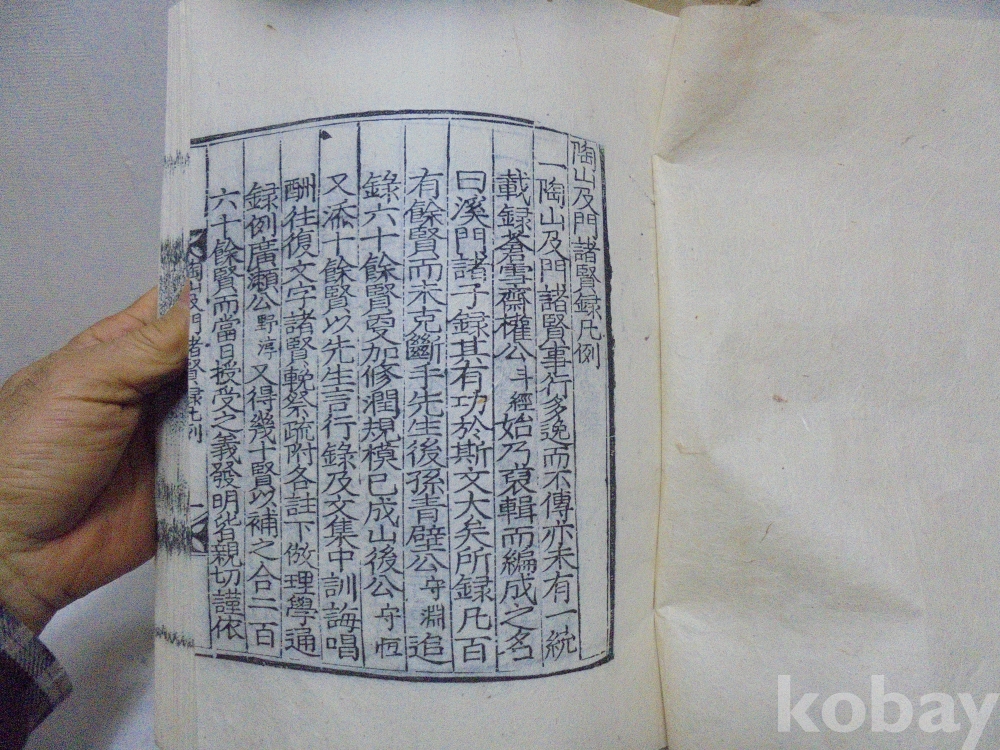 陶山及門諸賢録凡例
一陶山及門諸賢事行多逸而不傳亦未有一統
載録蒼雪齋權公斗經始乃裒輯而編成之名
曰溪門諸子録其有功於斯文大矣所録凡百
有餘賢而未克斷手先生後孫青壁公守淵追
錄六十餘賢更加修潤規模已成山後公守恒
又添十餘賢以先生言行錄及文集中訓誨唱
酬往復文字諸賢輓祭疏附各註下倣理學通
録例廣瀬公野淳又得幾十賢以補之合二百
六十餘賢而當日授受之義發明皆親切謹依
陶山及門諸賢録凡例 一
kobay